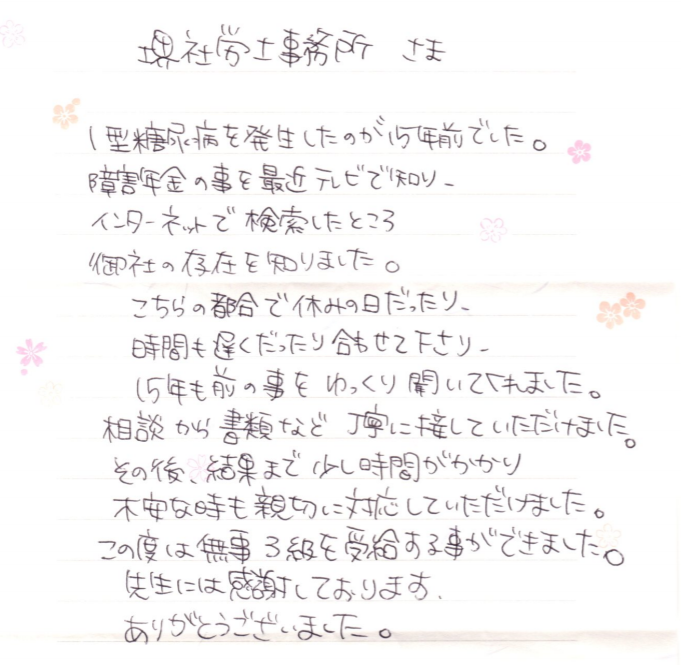 堺社労士事務所 さま
1型糖尿病を発生したのが15年前でした。
障害年金の事を最近テレビで知り、
インターネットで検索したところ
御社の存在を知りました。
こちらの都合で休みの日だったり、
時間も遅くだったり合わせて下さり、
15年も前の事をゆっくり聞いてくれました。
相談から書類など丁寧に接していただけました。
その後、結果まで少し時間がかかり
不安な時も親切に対応していただけました。
この度は無事3級を受給する事ができました。
先生には感謝しております。
ありがとうございました。